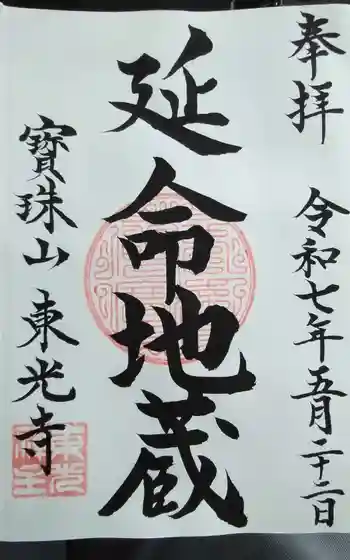 奉拝
令和七年五月二十二日
延命地蔵
寶珠山東光寺